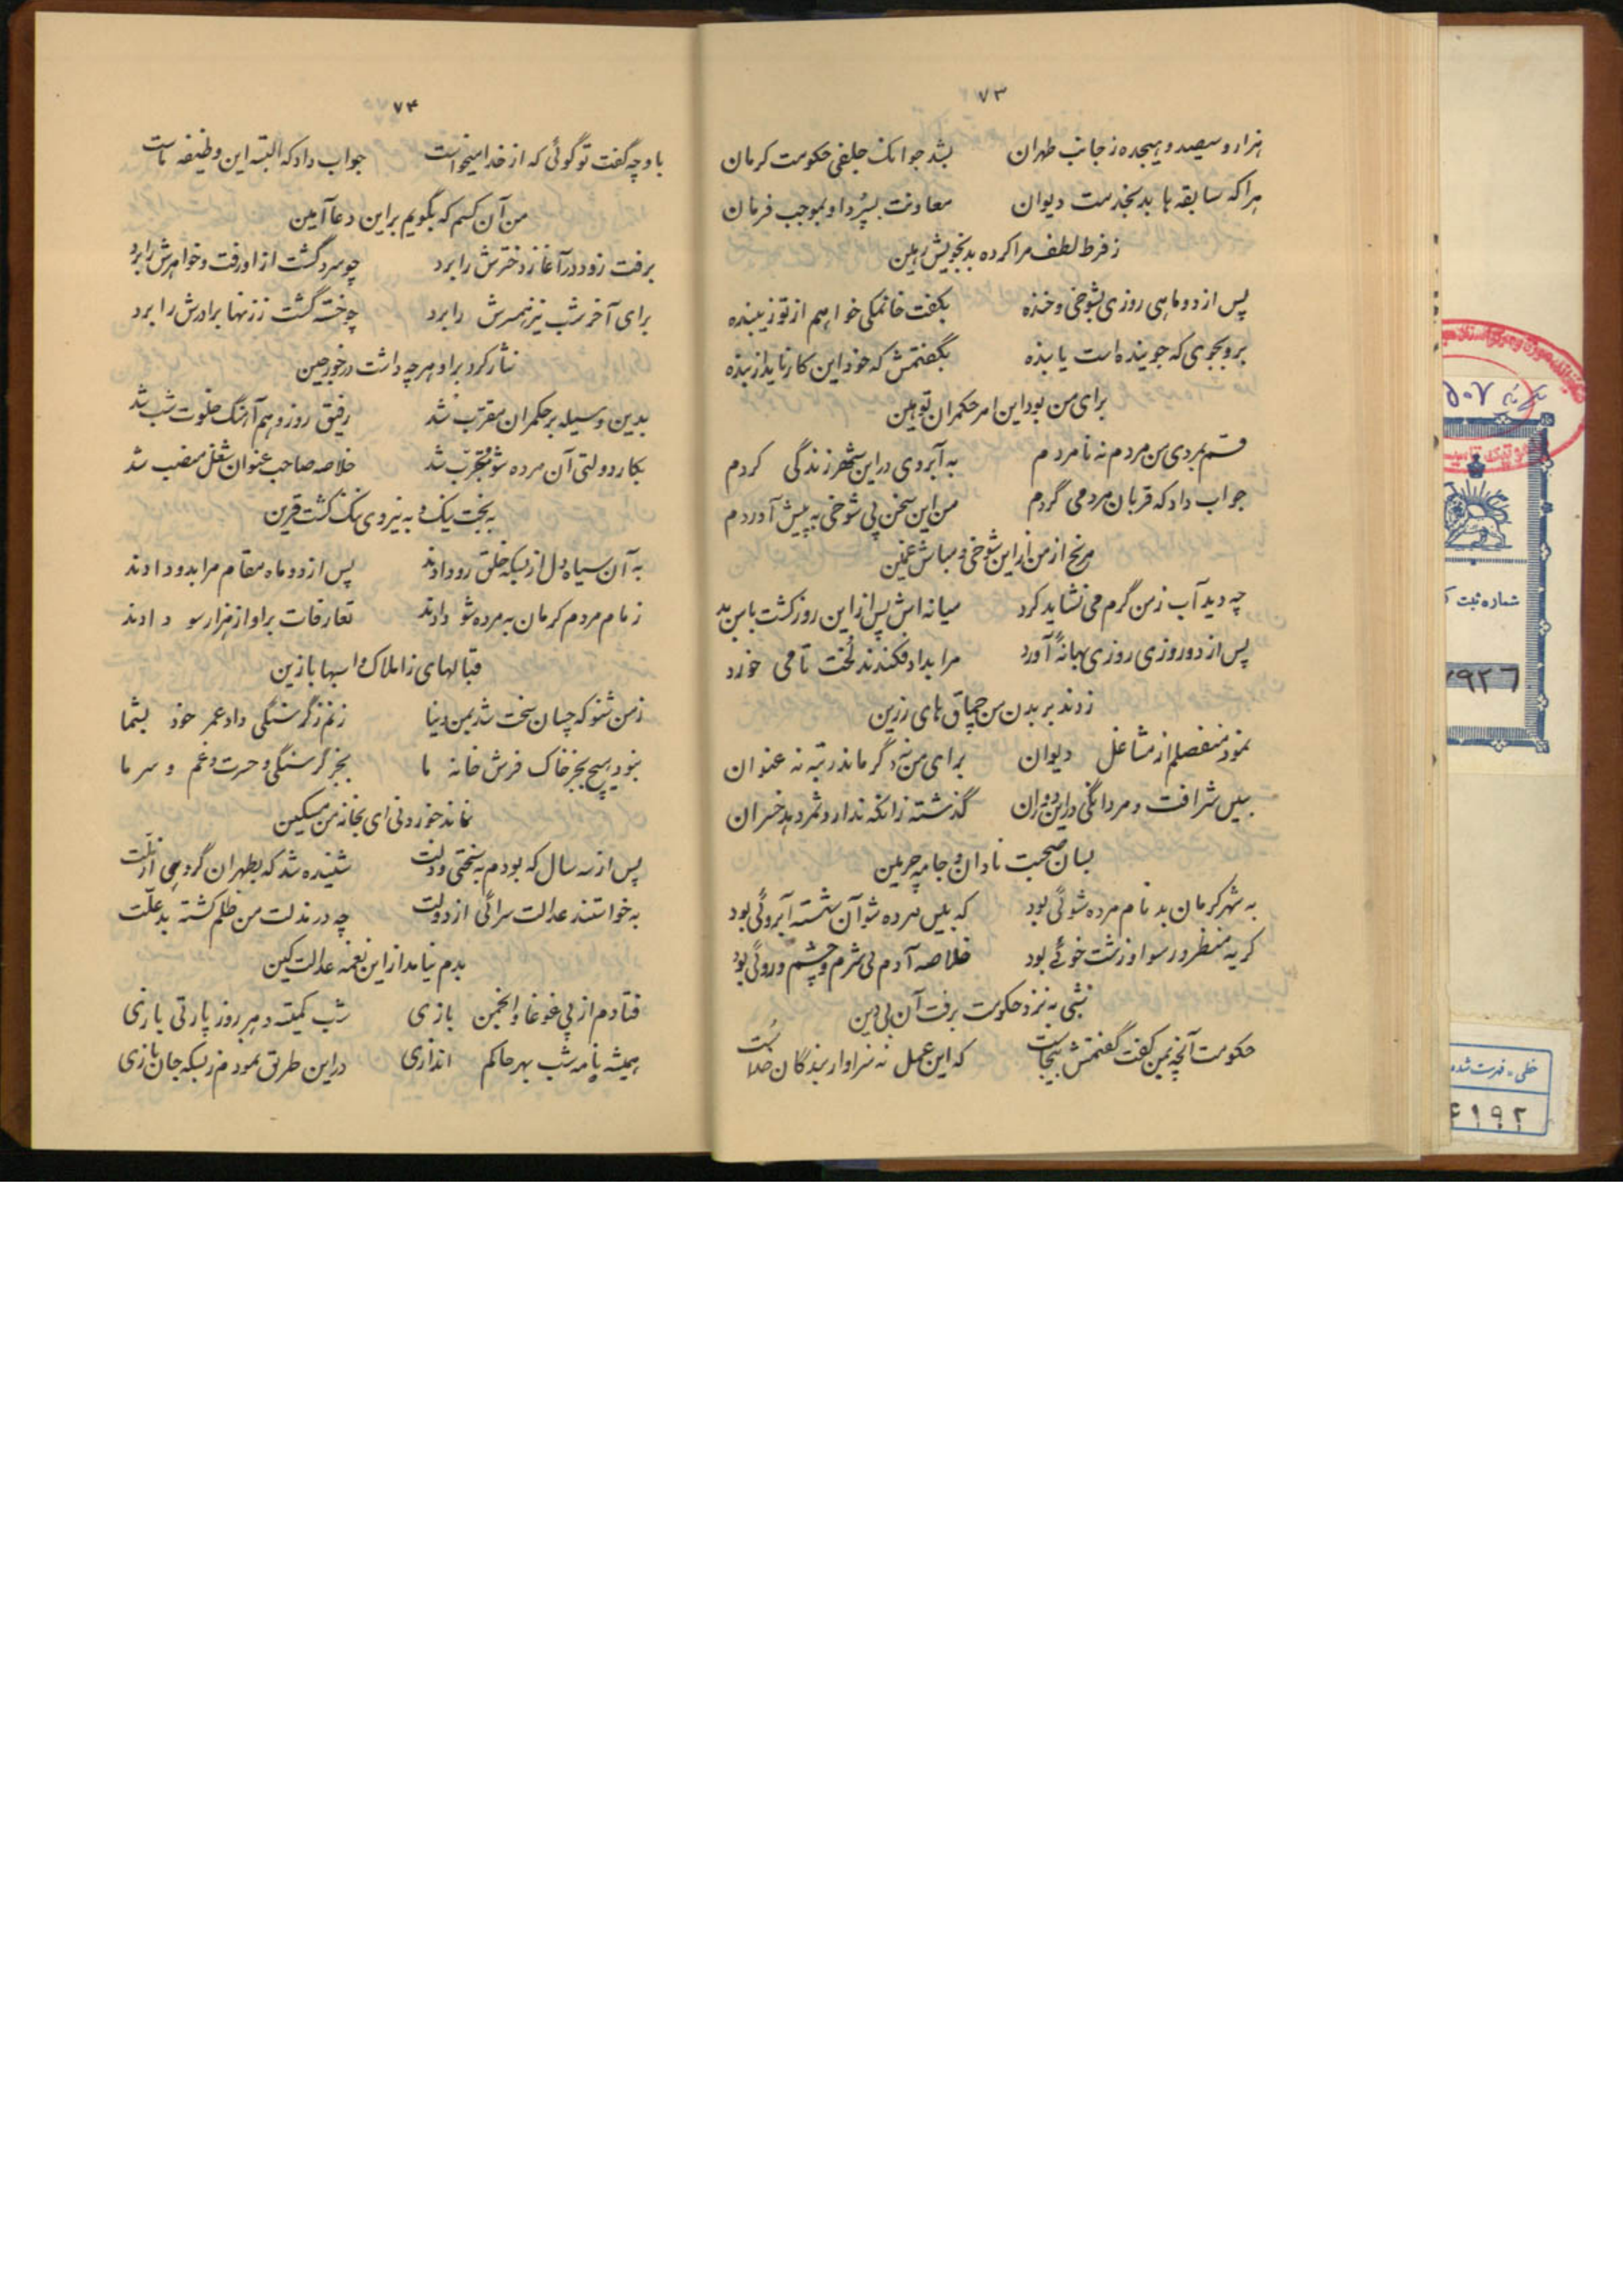 ۷۳
هزار و سیصد و هیجده ز جانب طهران بشد جوانک جلفی حکومت کرمان
هرا که سابقه ها بد بخدمت دیوان معاونت بسپُرد او بموجب فرمان
ز فرط لطف مرا کرده بد بخویش رهین
پس از دو ماهی روزی بشوخی و خنده بگفت خانمکی خواهم از تو زیبنده
برو بجوی که جوینده است یابنده بگفتمش که خود این کار ناید از بنده
برای من بود این امر حکمران توهین
قسم بمردی من مردم نه نامردم به آبروی در این شهر زندگی کردم
جواب داد که قربان مردمی گردم من این سخن پی شوخی به پیش آوردم
مرنج از من از این شوخی و مباش غمین
چه دید آب ز من گرم می نشاید کرد میانه اش پس از این روز گشت با من بد
پس از دو روزی روزی بهانهٔ آورد مرا بداد فکندند لُخت تا می خورد
زدند بر بدن من چماق های رزین
نمود منفصلم از مشاغل دیوان برای من نه دگر ماند رتبه نه عنوان
ببین شرافت و مردانگی در این دوران گذشته زانکه ندارد ثمر دهد خسران
بسان صحبت نادان و جامه چرمین
به شهر کرمان بد نام مرده شوئی بود که بین مرده شو آن شسته آبروئی بود
کریه منظر و رسوا و زشت خوئی بود خلاصه آدم بی شرم و چشم و روئی بود
شبی به نزد حکومت برفت آن بی دین
حکومت آنچه بمن گفت گفتمش بیجاست که این عمل نه سزاوار بندگان خداست
۷۴
باو چه گفت تو گوئی که از خدا میخواست جواب داد که البته این وظیفه ماست
من آن کسم که بگویم بر این دعا آمین
برفت زود در آغاز دخترش را برد چو سرد گشت از او رفت و خواهرش را برد
برای آخر شب نیز همسرش را برد چو خسته گشت ز زنها برادرش را برد
نثار کرد بر او هر چه داشت در خورجین
بدین وسیله بر حکمران مقرّب شد رفیق روز و هم آهنگ خلوت شب شد
بکار دولتی آن مرده شو مُجرّب شد خلاصه صاحب عنوان و شغل و منصب شد
به بخت نیک و به نیروی ننگ گشت قرین
به آن سیاه دل از بسکه خلق رو دادند پس از دو ماه مقام مرا بدو دادند
زمام مردم کرمان به مرده شو دادند تعارفات بر او از هزار سو دادند
قباله های ز املاک و اسبها با زین
ز من شنو که چسان سخت شد بمن دنیا زنم ز گرسنگی داد عمر خود بشما
نبود هیچ بجز خاک فرش خانه ما بجز گرسنگی و حسرت و غم و سرما
نماند خوردنی ای بخانهٔ من مسکین
پس از سه سال که بودم به سختی و ذلت شنیده شد که بطهران گروهی از ملّت
به خواستند عدالت سرائی از دولت چه در مذلت من ظلم گشته بد علّت
بدم نیامد از این نغمه عدالت کین
فتادم از پی غوغا و انجمن بازی شب کمیته و هر روز پارتی بازی
همیشه نامه شب بهر حاکم اندازی در این طریق نمودم ز بسکه جان بازی
شماره ثبت
۶۱۹۲